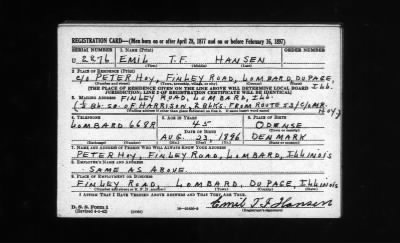 REGISTRATION CARD—(Men born on or after April 28, 1877 and on or before February 16, 1897)
SERIAL NUMBER 1. NAME (Print) ORDER NUMBER
U 2276 EMIL T.F. HANSEN
(First) (Middle) (Last)
2. PLACE OF RESIDENCE (Print)
C/O PETER HOY, FINLEY ROAD, LOMBARD, DUPAGE, ILL.
(Number and street) (Town, township, village, or city) (County) (State)
[THE PLACE OF RESIDENCE GIVEN ON THE LINE ABOVE WILL DETERMINE LOCAL BOARD
JURISDICTION; LINE 2 OF REGISTRATION CERTIFICATE WILL BE IDENTICAL]
3. MAILING ADDRESS FINLEY ROAD, LOMBARD, ILL.
(½ BLK. SO. OF HARRISON, 2 BLKS. FROM ROUTE 53 / C/O MR. HOY)
4. TELEPHONE 5. AGE IN YEARS 6. PLACE OF BIRTH
LOMBARD 668R 45 ODENSE
DATE OF BIRTH (Town or county)
AUG. 23, 1896 DENMARK
(Exchange) (Number) (Mo.) (Day) (Yr.) (State or country)
7. NAME AND ADDRESS OF PERSON WHO WILL ALWAYS KNOW YOUR ADDRESS
PETER HOY, FINLEY ROAD, LOMBARD, ILLINOIS
8. EMPLOYER'S NAME AND ADDRESS
SAME AS ABOVE
9. PLACE OF EMPLOYMENT OR BUSINESS
FINLEY ROAD, LOMBARD, DU PAGE, ILLINOIS
(Number and street or R. F. D. number) (Town) (County) (State)
I AFFIRM THAT I HAVE VERIFIED ABOVE ANSWERS AND THAT THEY ARE TRUE.
D. S. S. Form 1
(Revised 4-1-42) (over) Emil T. F. Hansen
(Registrant's signature)